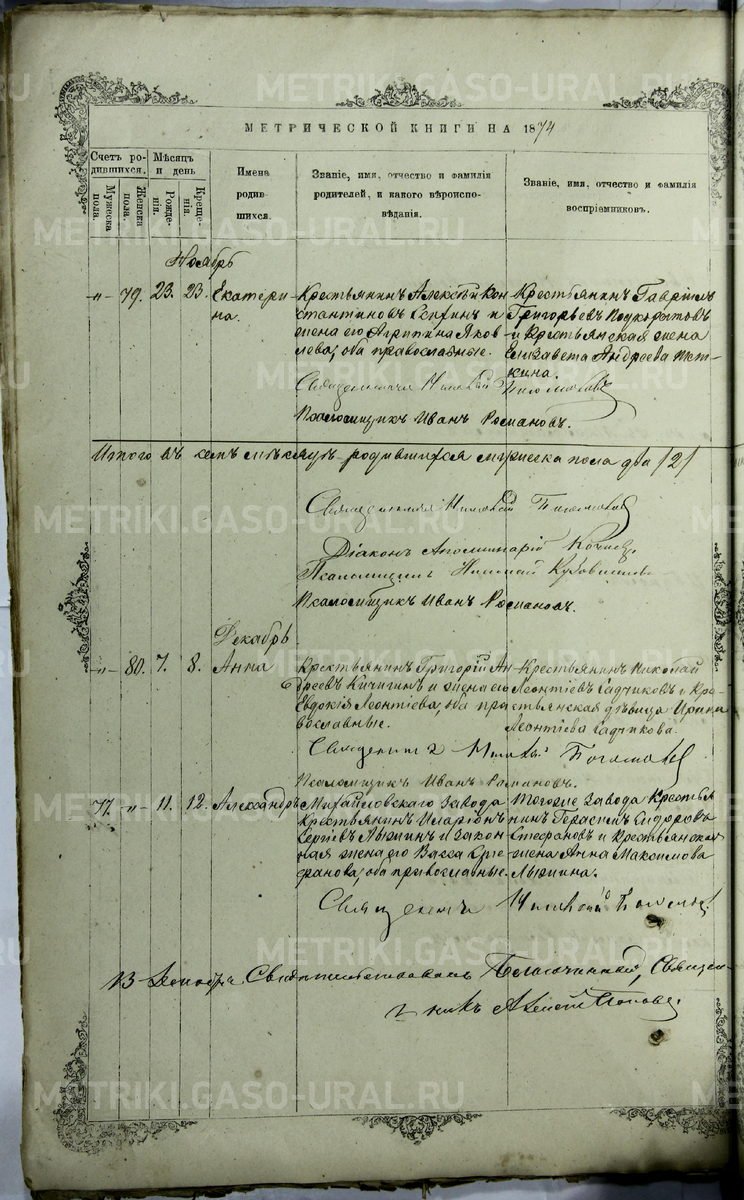 МЕТРИЧЕСКОЙ КНИГИ НА 1874
Счетъ родившихся.
Мужеска пола.
Женска пола.
Мѣсяцъ и день
Рожденія.
Крещенія.
Имена родившихся.
Званіе, имя, отчество и фамилія родителей, и какого вѣроисповѣданія.
Званіе, имя, отчество и фамилія воспріемниковъ.
Ноябрь
"
79.
23.
23.
Екатерина.
Крестьянинъ Алексѣй Константиновъ
и жена его Агрипина Яковлева, оба православные.
Крестьянинъ Гавріилъ
Григорьевъ
и крестьянская жена
Елизавета Андреева
Священникъ Николай
Псаломщикъ Иванъ Романовъ.
Итого въ семъ мѣсяцѣ родившихся мужеска пола два /2/
Священникъ Николай
Діаконъ Аполлинарій
Псаломщикъ Николай
Псаломщикъ Иванъ Романовъ.
Декабрь
"
80.
7.
8.
Анна
Крестьянинъ Григорій Андреевъ Кичигинъ и жена его
Евдокія Леонтіева, оба православные.
Крестьянинъ Николай
Леонтіевъ Садчиковъ и крестьянская дѣвица Ирина
Леонтіева Садчикова.
Священникъ Никол.
Псаломщикъ Иванъ Романовъ.
77.
"
11.
12.
Александръ
Михайловскаго завода
крестьянинъ Иларіонъ
Сергіевъ Лыжинъ и законная жена его Васса Стефанова, оба православные.
Тогоже завода крестьянинъ Герасимъ Сидоровъ
Стефановъ и крестьянская
жена Анна Максимова
Лыжина.
Священникъ Николай
13 Декабря Свидѣтельствовалъ Благочинный, Священникъ Алексѣй Поповъ.
METRIKI.GASO-URAL.RU